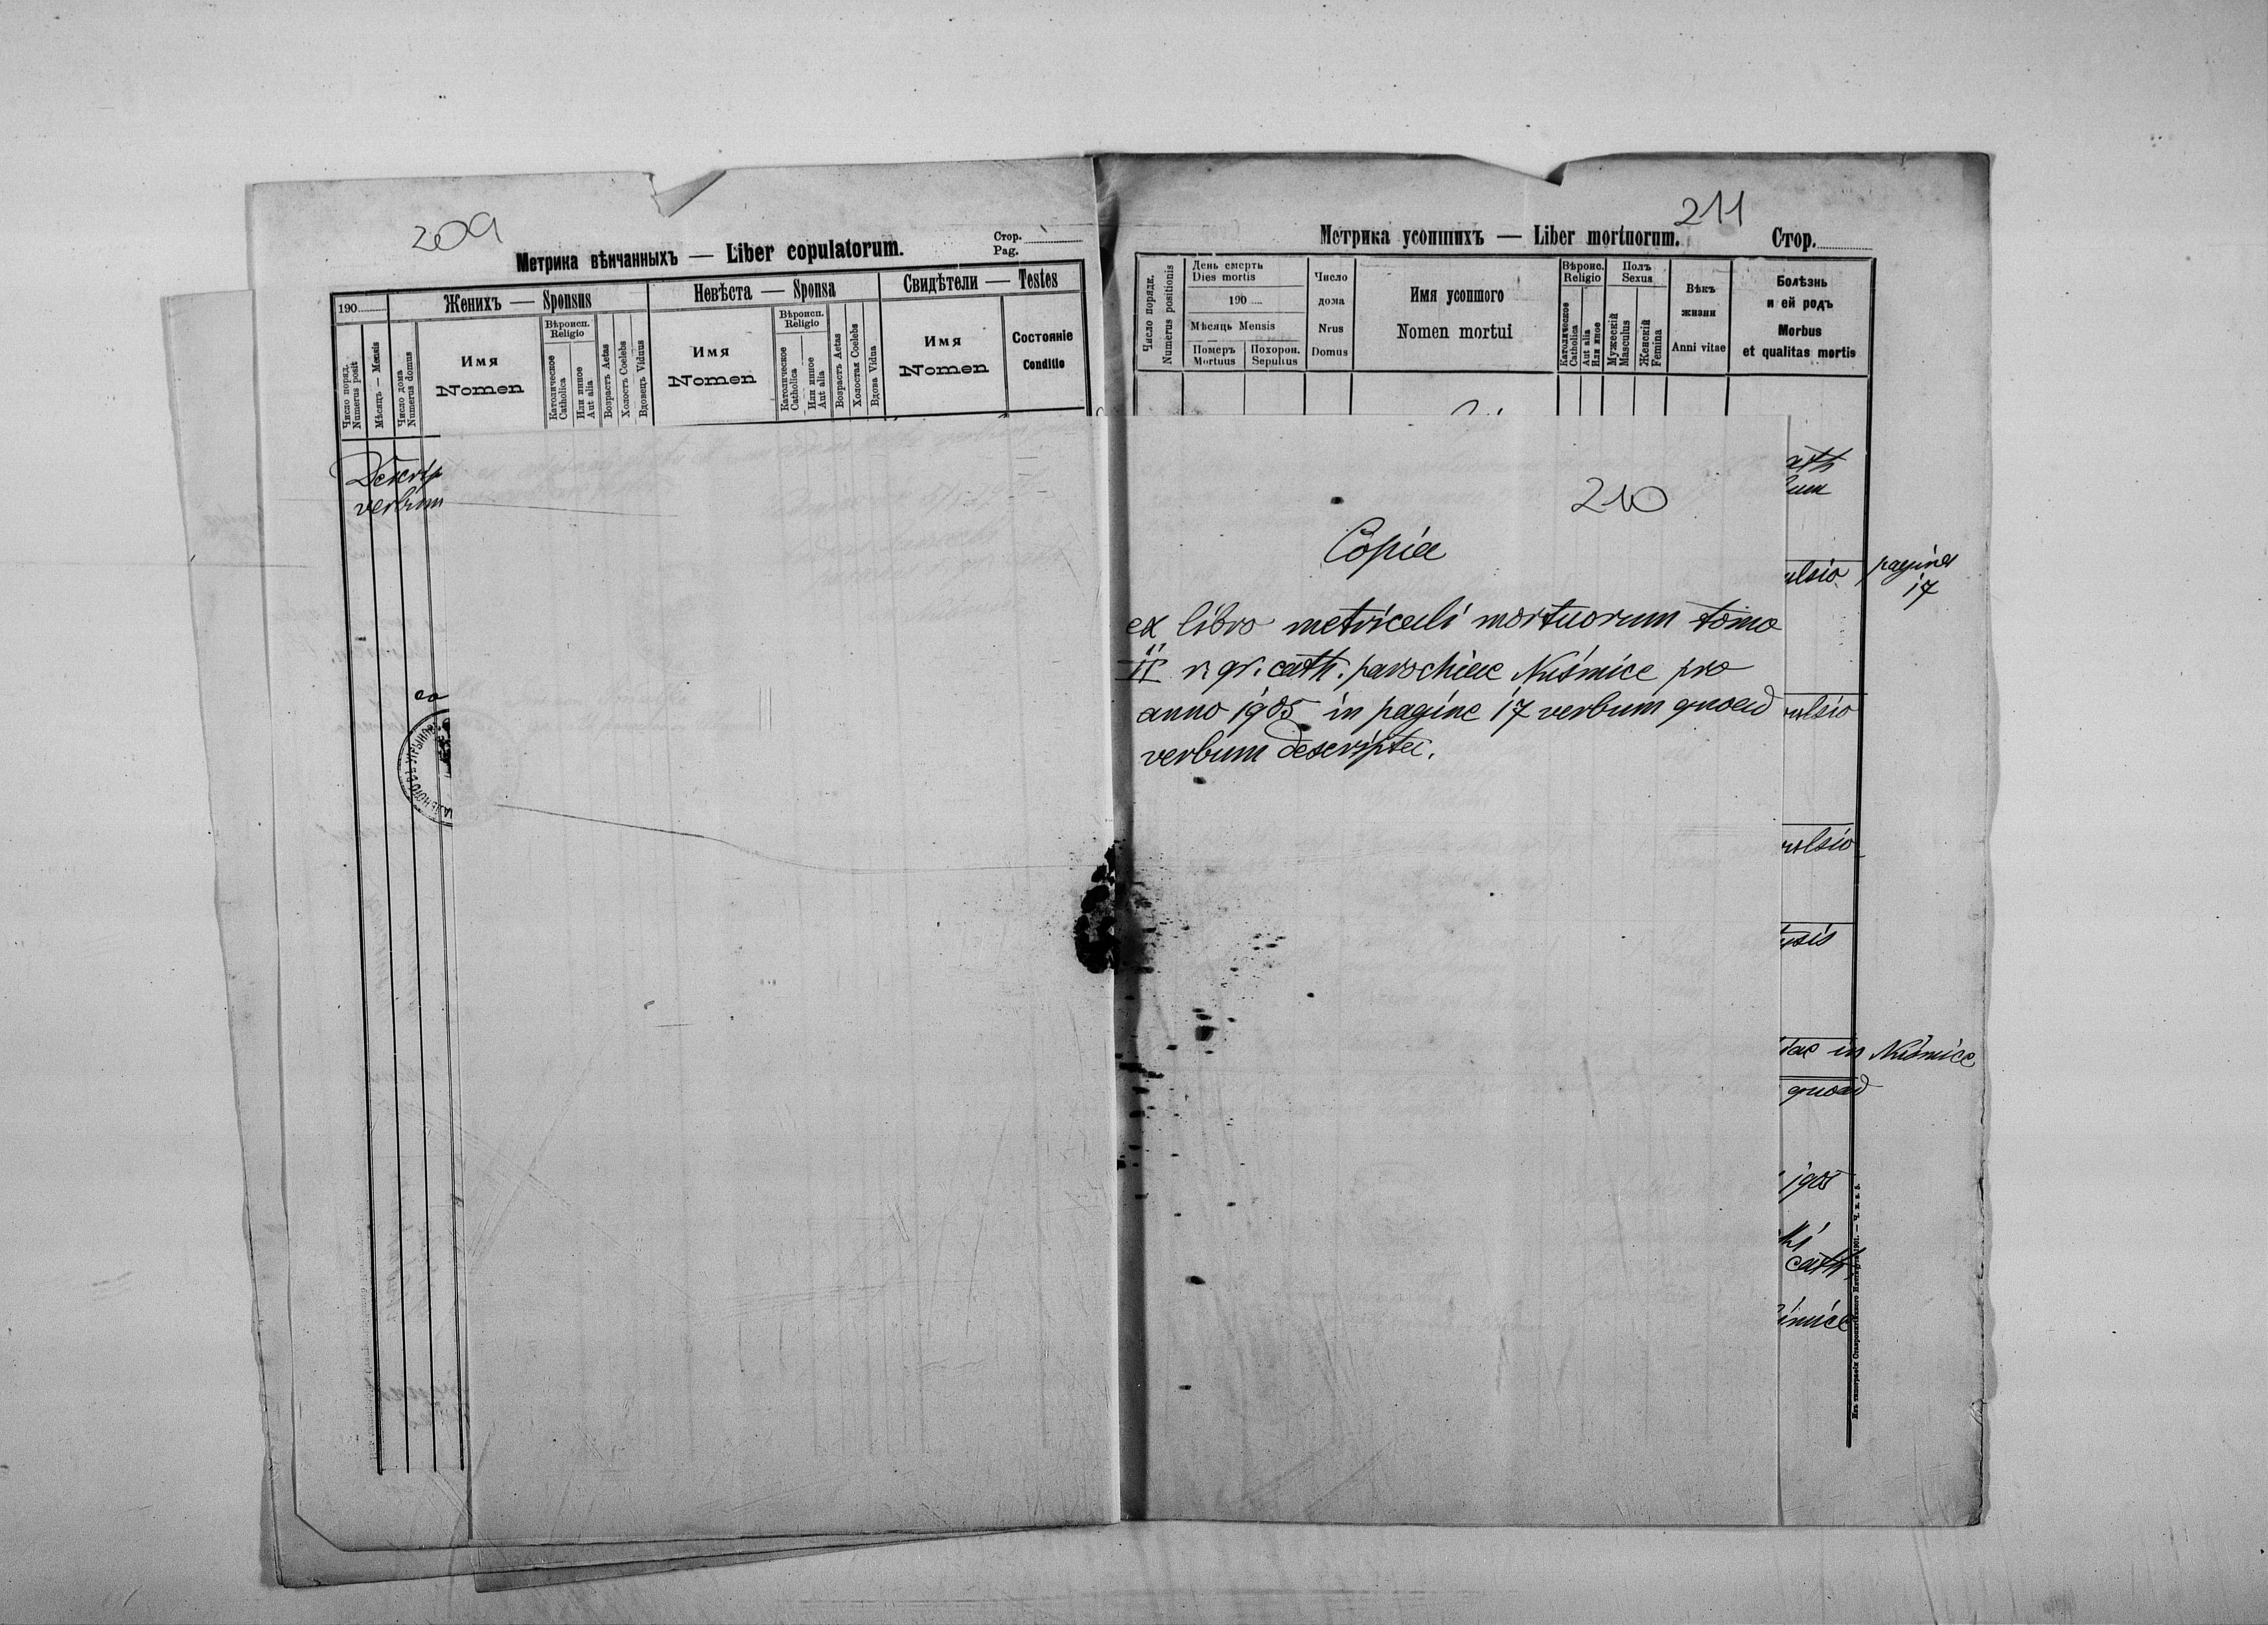 209
Метрика вѣнчанныхъ — Liber copulatorum.
Стор.
Pag.
190
Женихъ — Sponsus
Невѣста — Sponsa
Свидѣтели — Testes
Число поряд.
Numerus posit
Мѣсяцъ — Mensis
Число дома
Numerus domus
Имя
Nomen
Вѣроисп.
Religio
Католическое
Catholica
Или инное
Aut alia
Возрастъ Aetas
Холостъ Coelebs
Вдовецъ Viduus
Имя
Nomen
Вѣроисп.
Religio
Католическое
Catholica
Или инное
Aut alia
Возрастъ Aetas
Холостая Coelebs
Вдова Vidua
Имя
Nomen
Состояніе
Conditio
verbum
211
Метрика усопшихъ — Liber mortuorum.
Стор.
Число порядк.
Numerus positionis
День смерть
Dies mortis
190
Мѣсяць Mensis
Померъ
Mortuus
Похорон.
Sepultus
Число
дома
Nrus
Domus
Имя усопшого
Nomen mortui
Вѣроис.
Religio
Католическое
Catholica
Aut alia
Или иное
Полъ
Sexus
Мужескій
Masculus
Женскій
Femina
Вѣкъ
жизни
Anni vitae
Болѣзнь
и ей родъ
Morbus
et qualitas mortis
210
Copia
ex libro metricali mortuorum tomo
II r. gr. cath. parochiae Nuśmice pro
anno 1905 in pagine 17 verbum quoad
verbum descripta.
ath
ulsio pagina
17
ulsio
ulsio
ussis
dae in Nuśmice
quoad
1905
cath
śmice